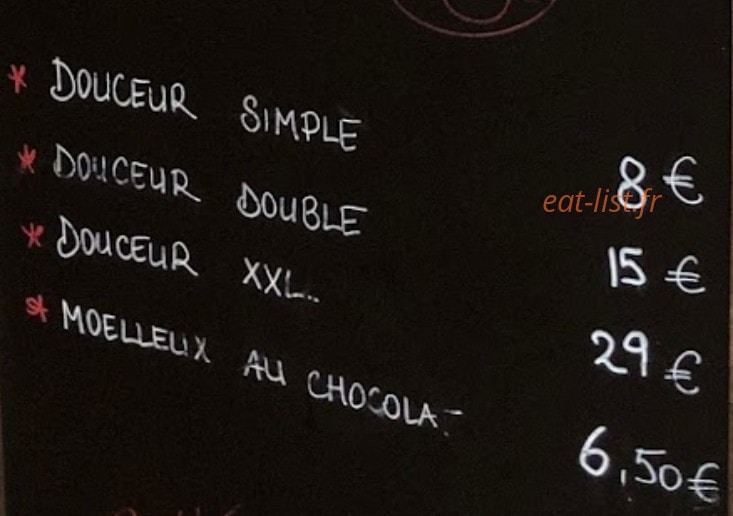 * DOUCEUR SIMPLE 8 €
* DOUCEUR DOUBLE 15 €
* DOUCEUR XXL.. 29 €
* MOELLEUX AU CHOCOLAT 6,50€
eat-list.fr